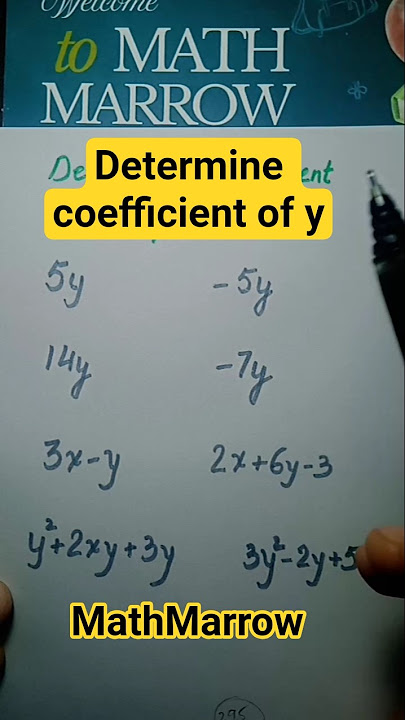 Welcome
to MATH
MARROW
Determine
coefficient of y
5y -5y
14y -7y
3x-y 2x+6y-3
y²+2xy+3y 3y²-2y+5
MathMarrow
295